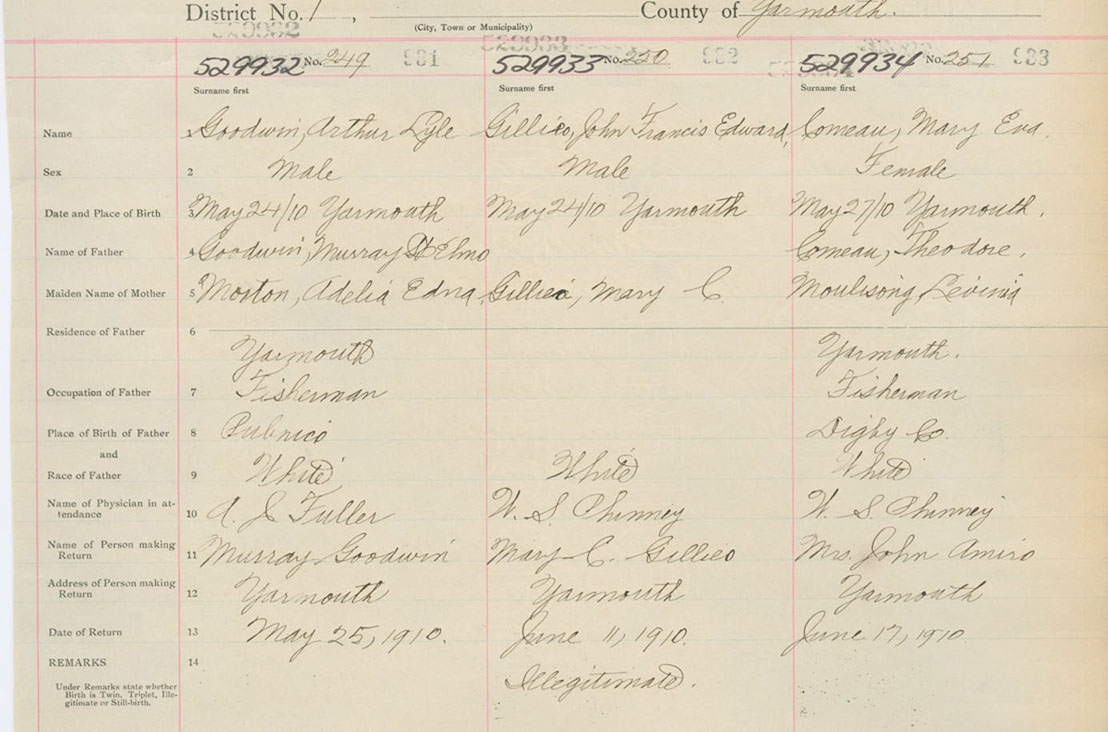 District No. 1 , County of Yarmouth.
(City, Town or Municipality)
529932 529933
529932 No. 249 931 529933 No. 250 932 529934 No. 251 933
Surname first Surname first Surname first
Name 1 Goodwin, Arthur Lyle Gillies, John Francis Edward, Comeau, Mary Eva.
Sex 2 Male Male Female
Date and Place of Birth 3 May 24/10 Yarmouth May 24/10 Yarmouth May 27/10 Yarmouth.
Name of Father 4 Goodwin, Murray St Elmo Comeau, Theodore.
Maiden Name of Mother 5 Morton, Adelia Edna, Gillies, Mary C. Levinia
Residence of Father 6
Yarmouth Yarmouth.
Occupation of Father 7 Fisherman Fisherman
Place of Birth of Father 8 Pubnico Digby Co.
and
Race of Father 9 White White White
Name of Physician in at-
tendance 10 A. J. Fuller W. S. Phinney W. S. Phinney
Name of Person making
Return 11 Murray Goodwin Mary C. Gillies Mrs. John Amiro
Address of Person making
Return 12 Yarmouth Yarmouth Yarmouth
Date of Return 13 May 25, 1910. June 11, 1910. June 17, 1910.
REMARKS 14
Under Remarks state whether
Birth is Twin, Triplet, Ille-
gitimate or Still-birth.
Illegitimate.